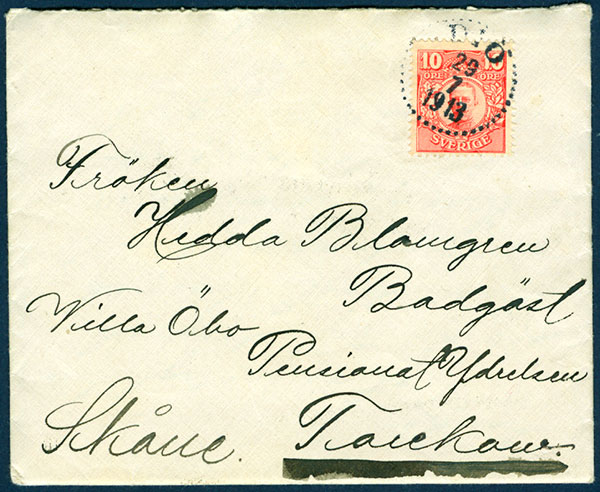 DIÖ
29
7
1913
10 10
ÖRE ÖRE
SVERIGE
Fröken
Hedda Blomgren
Badgäst
Villa Öbo
Pensionat
Skåne. Torekow.